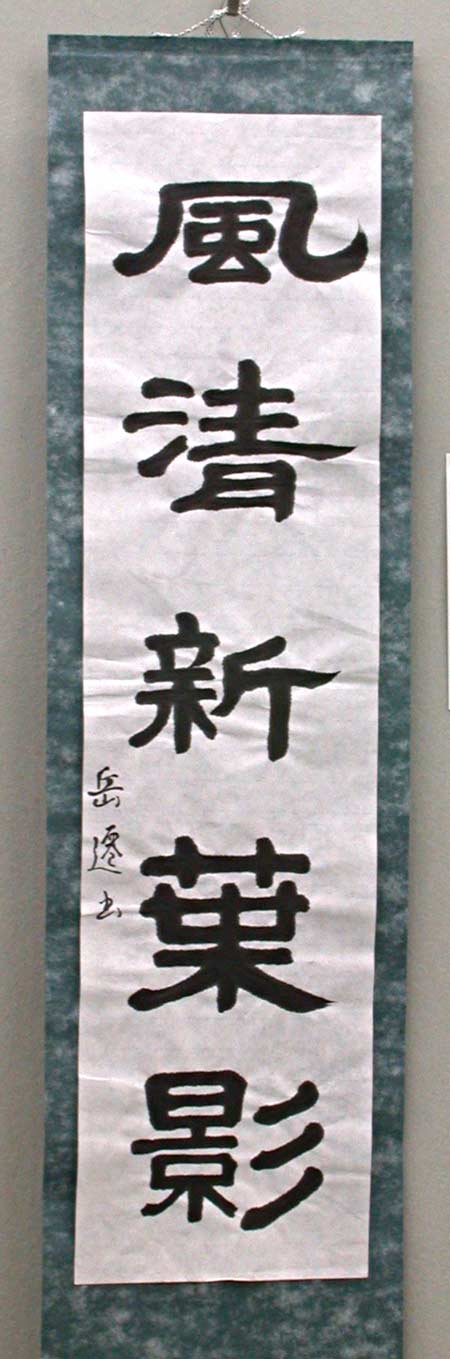 風清新葉影
岳遷書